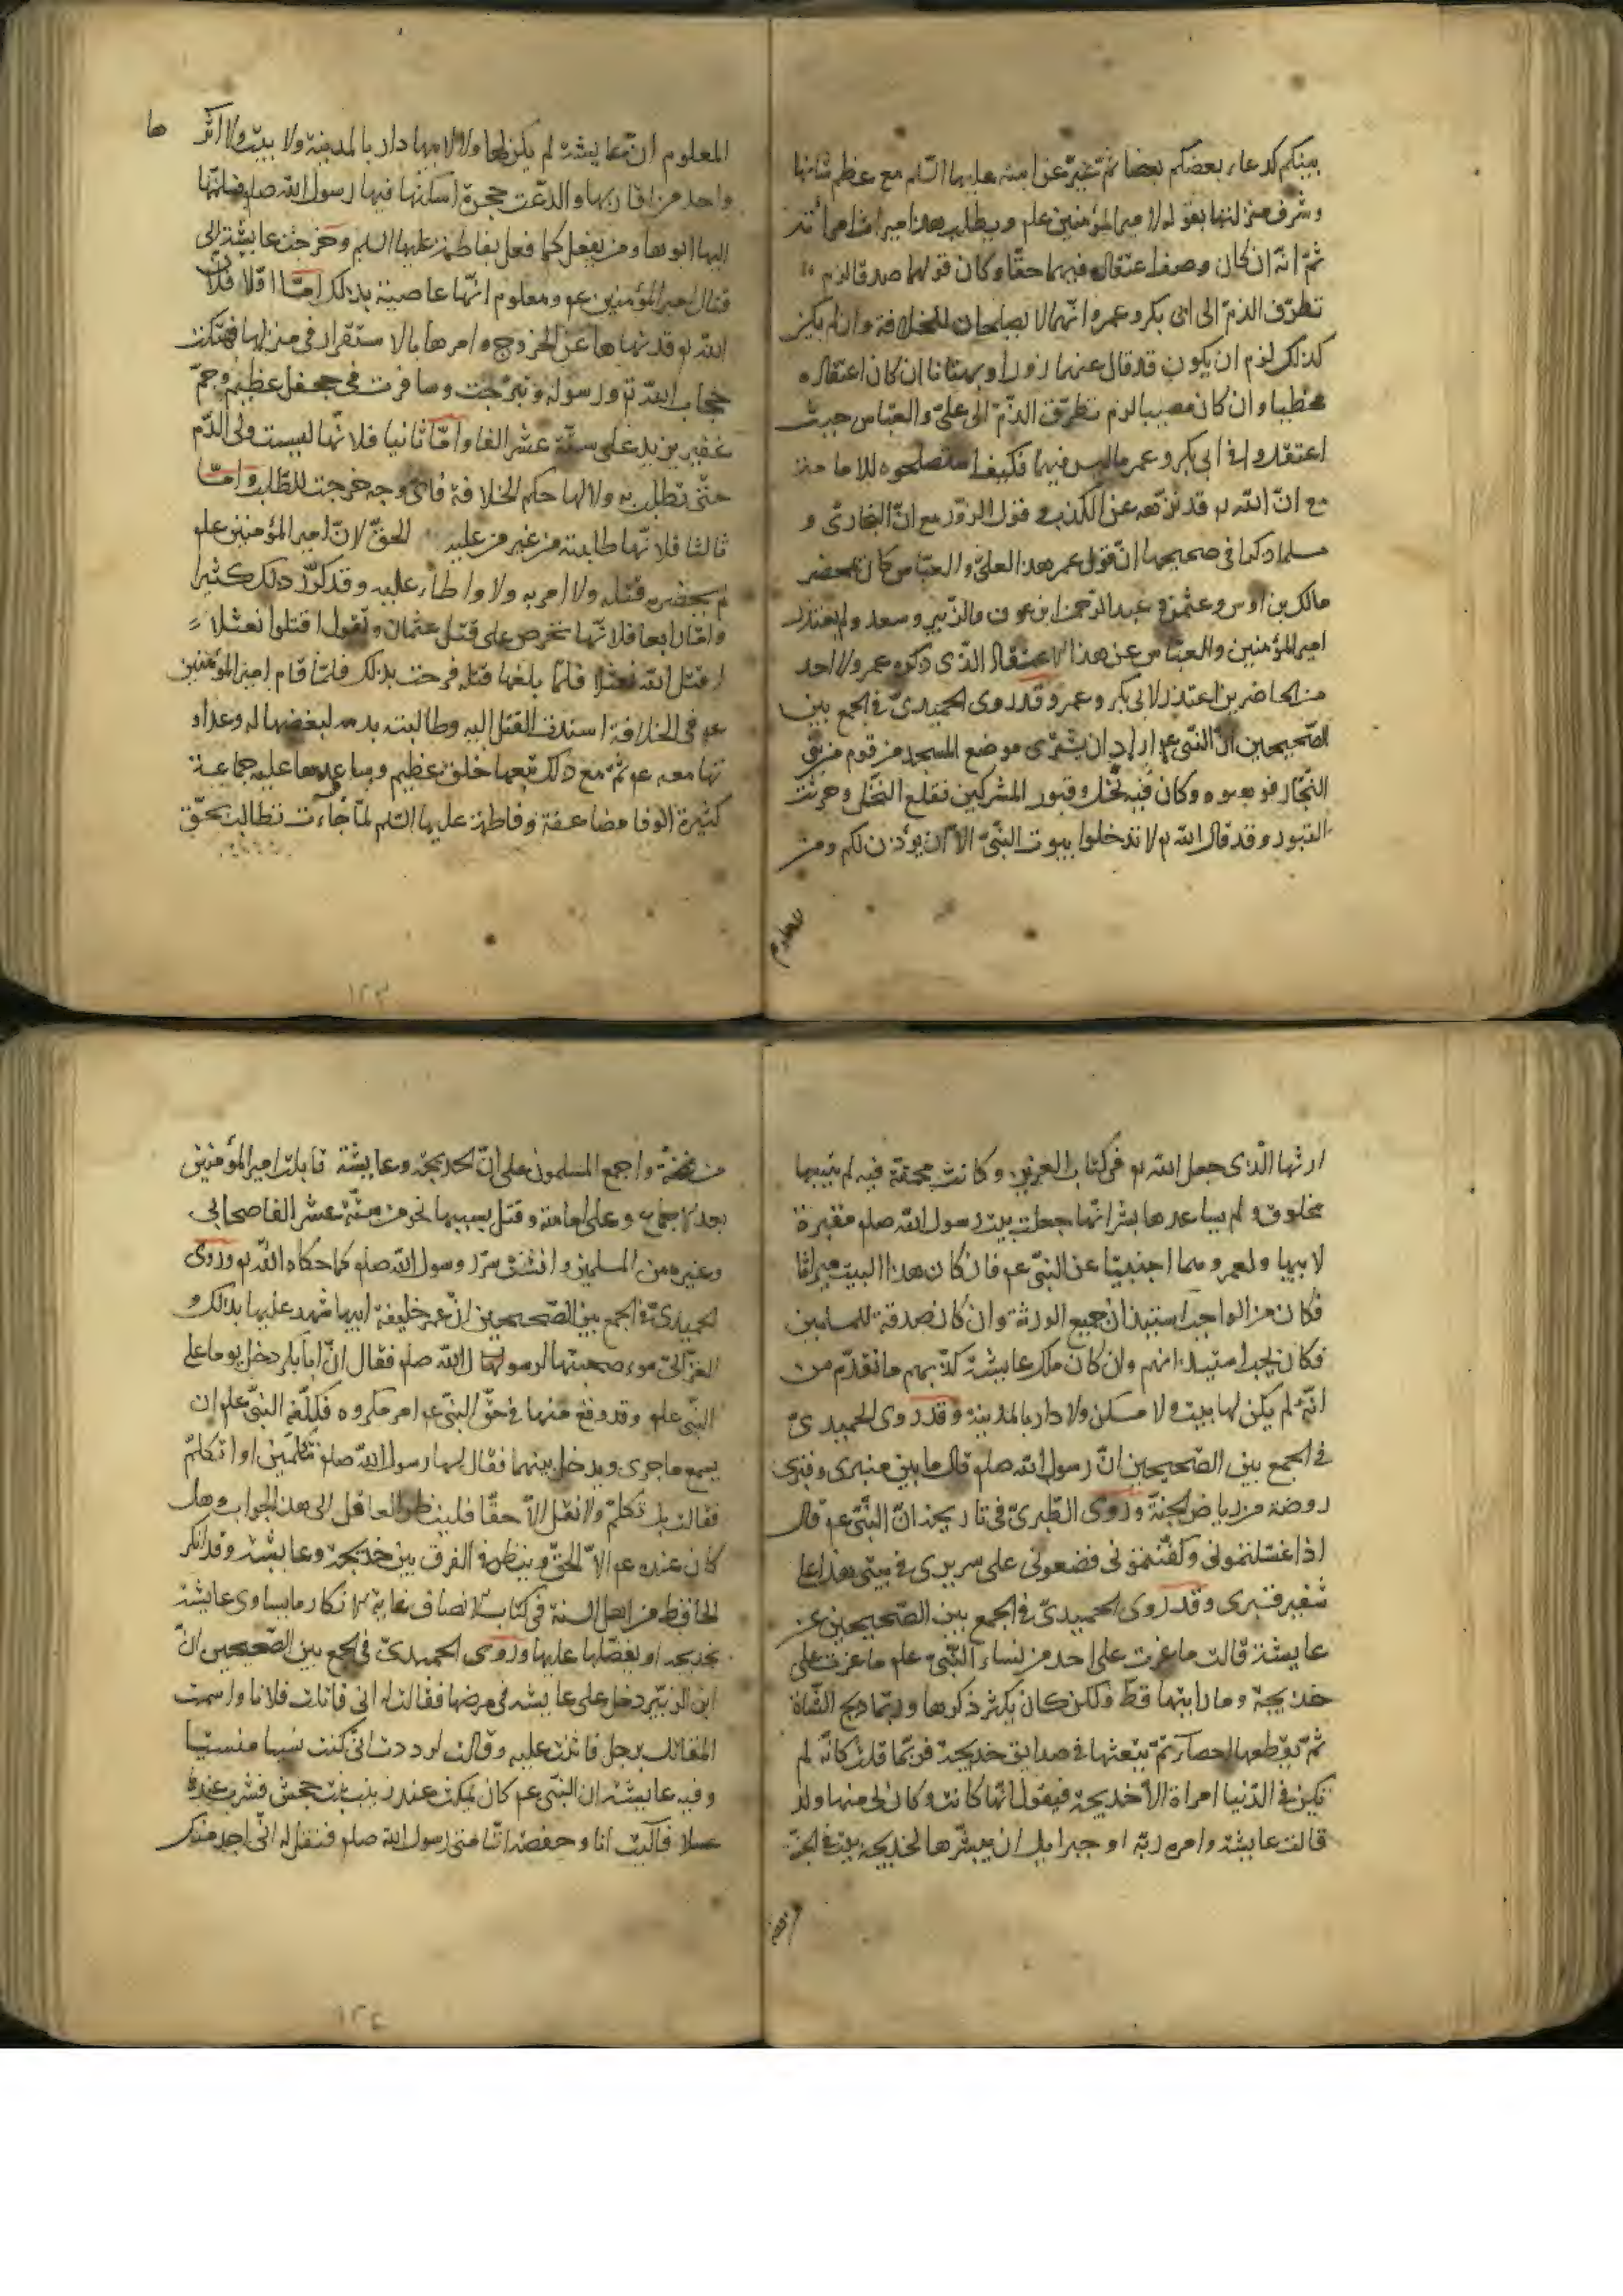 بينكم كدعاء بعضكم بعضا ثم غيّر عن ابنته عليها السلم مع عظم شانها
وشرف منزلتها بقوله لامير المؤمنين علم ويطلب هذا ميراث امرأته
ثمّ انّه ان كان وصف اعتقاله فيهما حقّا وكان قولهما صدقا لزم
تطرّق الذمّ الى ابى بكر وعمر وانّهما لا يصلحان للخلافة وان لم يكن
كذلك لزم ان يكون قد قال عنهما زورا وبهتانا ان كان اعتقاده
مخطيا وان كان مصيبا لزم تطرّق الذّمّ الى علىّ والعبّاس حيث
اعتقدوا فى ابى بكر وعمر ما ليس فيهما فكيف استصلحوه للامامة
مع انّ الله تع قد نزّهه عن الكذب وقول الزور مع انّ البخارىّ و
مسلما ذكرا فى صحيحهما انّ قول عمر هذا لعلىّ والعبّاس كان بمحضر
مالك بن اوس وعثمن وعبد الرحمن بن عوف والزبير وسعد ولم يعتذر
امير المؤمنين والعبّاس عن هذا الاعتقاد الّذى ذكره عمر ولا احد
من الحاضرين اعتذر لابى بكر وعمر وقد روى الحميدىّ فى الجمع بين
الصّحيحين انّ النّبىّ عم اراد ان يشترى موضع المسجد من قوم من بنى
النّجّار فوهبوه وكان فيه نخل وقبور المشركين فقلع النّخل وخربت
القبور وقد قال الله تع لا تدخلوا بيوت النّبىّ الّا ان يؤذن لكم ومن
المعلوم
المعلوم انّ عايشة لم يكن لها ولا لابيها دار بالمدينة ولا بيت ولا اثر
واحد من اقاربها وادّعت حجرة اسكنها فيها رسول الله صلم فسلّمها
اليها ابوها ومن يفعل كما فعل بفاطمة عليها السلم وخرجت عايشة الى
قتال امير المؤمنين عم ومعلوم انّها عاصية بذلك امّا اوّلا فلانّ
الله تع قد نهاها عن الخروج وامرها بالاستقرار فى منزلها فهتكت
حجاب الله تع ورسوله وتبرّجت وسافرت فى جحفل عظيم وجمّ
غفير يزيد على ستّة عشر الفا وامّا ثانيا فلانّها ليست ولىّ الدّم
حتّى تطلب به ولا لها حكم الخلافة فاىّ وجه خرجت للطّلب وامّا
ثالثا فلانّها طلبته من غير من عليه الحقّ لانّ امير المؤمنين علم
لم يحضر قتله ولا امر به ولا واطأ عليه وقد ذكر ذلك كثيرا
وامّا رابعا فلانّها تحرص على قتل عثمان وتقول اقتلوا نعثلا
قتل الله نعثلا فلمّا بلغها قتله فرحت بذلك فلمّا قام امير المؤمنين
عم فى الخلافة اسندت القتل اليه وطالبت بدمه لبغضها له وعداو
تها معه عم ثمّ مع ذلك تبعها خلق عظيم وساعدها عليه جماعة
كثيرة الوفا مضاعفة وفاطمة عليها السّلم لمّا جاءت تطالب بحقّ
١٢٣
ارثها الّذى جعل الله تع فى كتابه العزيز وكانت محقة فيه لم يتبعها
مخلوق ولم يساعدها بشر انّها جعلت بيت رسول الله صلم مقبرة
لابيها ولعمر وهما اجنبيّان عن النبىّ عم فان كان هذا البيت ميراثا
فكان من الواجب استيذان جميع الورثة وان كان صدقة للمسلمين
فكان يجب استيذانهم وان كان ملك عايشة كذّبهم ما تقدّم من
انّه لم يكن لها بيت ولا مسكن ولا دار بالمدينة وقد روى الحميدىّ
فى الجمع بين الصّحيحين انّ رسول الله صلم قال ما بين منبرى وقبرى
روضة من رياض الجنّة وروى الطّبرىّ فى تاريخه انّ النّبىّ عم قال
اذا غسّلتمونى وكفّنتمونى فضعونى على سريرى فى بيتى هذا على
شفير قبرى وقد روى الحميدىّ فى الجمع بين الصّحيحين عن
عايشة قالت ما غرت على احد من نساء النّبىّ علم ما غرت على
خديجة وما رايتها قطّ ولكن كان يكثر ذكرها وربّما ذبح الشّاة
ثمّ يقطعها اعضآء ثمّ يبعثها فى صدايق خديجة فربّما قلت كانّه لم
تكن فى الدّنيا امراة الّا خديجة فيقول انّها كانت وكان لى منها ولد
قالت عايشة وامره ربّه او جبرايل ان يبشّرها لخديجة ببيت فى الجنّة
من قصب
من قصب واجمع المسلمون على انّ لخديجة وعايشة قابلت امير المؤمنين
بعد الاجماع وعلى امامته وقتل بسببها نحو من ستّة عشر الفا صحابى
وغيره من المسلمين وافشت سرّ رسول الله صلم كما حكاه الله تع وروى
الحميدىّ فى الجمع بين الصّحيحين انّ عمر خليفة ابيها شهد عليها بذلك و
الغزّالىّ سوء صحبتها لرسول الله صلم فقال انّ ابا بكر دخل يوما على
النّبىّ علم وقد وقع منها فى حقّ النبىّ عم امر مكروه فكلّفه النّبىّ علم ان
يسمع ما جرى ويدخل بينهما فقال لها رسول الله صلم تكلّمين او اتكلّم
فقالت بل تكلّم ولا تقل الّا حقّا فلينظر العاقل الى هذا الجواب وهل
كان عنده عم الّا الحقّ وينظر فى الفرق بين خديجة وعايشة وقد انكر
الجاحظ من اهل السنة فى كتاب الانصاف غاية الانكار ما يساوى عايشة
بخديجة او يفضّلها عليها وروى الحميدىّ فى الجمع بين الصّحيحين انّ
ابن الزّبير دخل على عايشة فى مرضها فقالت له انى قاتلت فلانا واسمت
المقاتل برجل قاتلت عليه وقالت لوددت انّى كنت نسيا منسيّا
وفيه عايشة ان النّبى عم كان يمكث عند زينب بنت جحش فشرب عنده
عسلا فآليت انا وحفصة اتّنا متى رسول الله صلم فنقل له انّى اجد منك
١٢٤